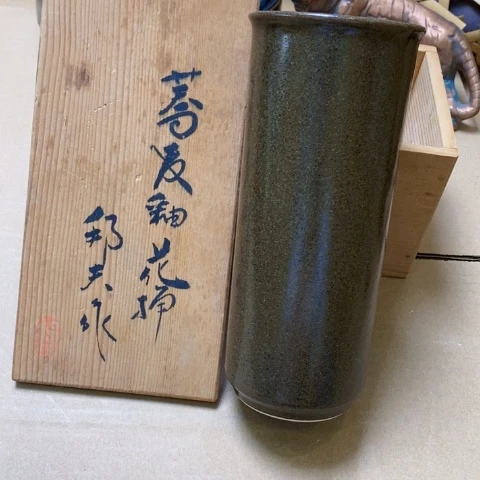 蕎麦釉花挿
邦夫作